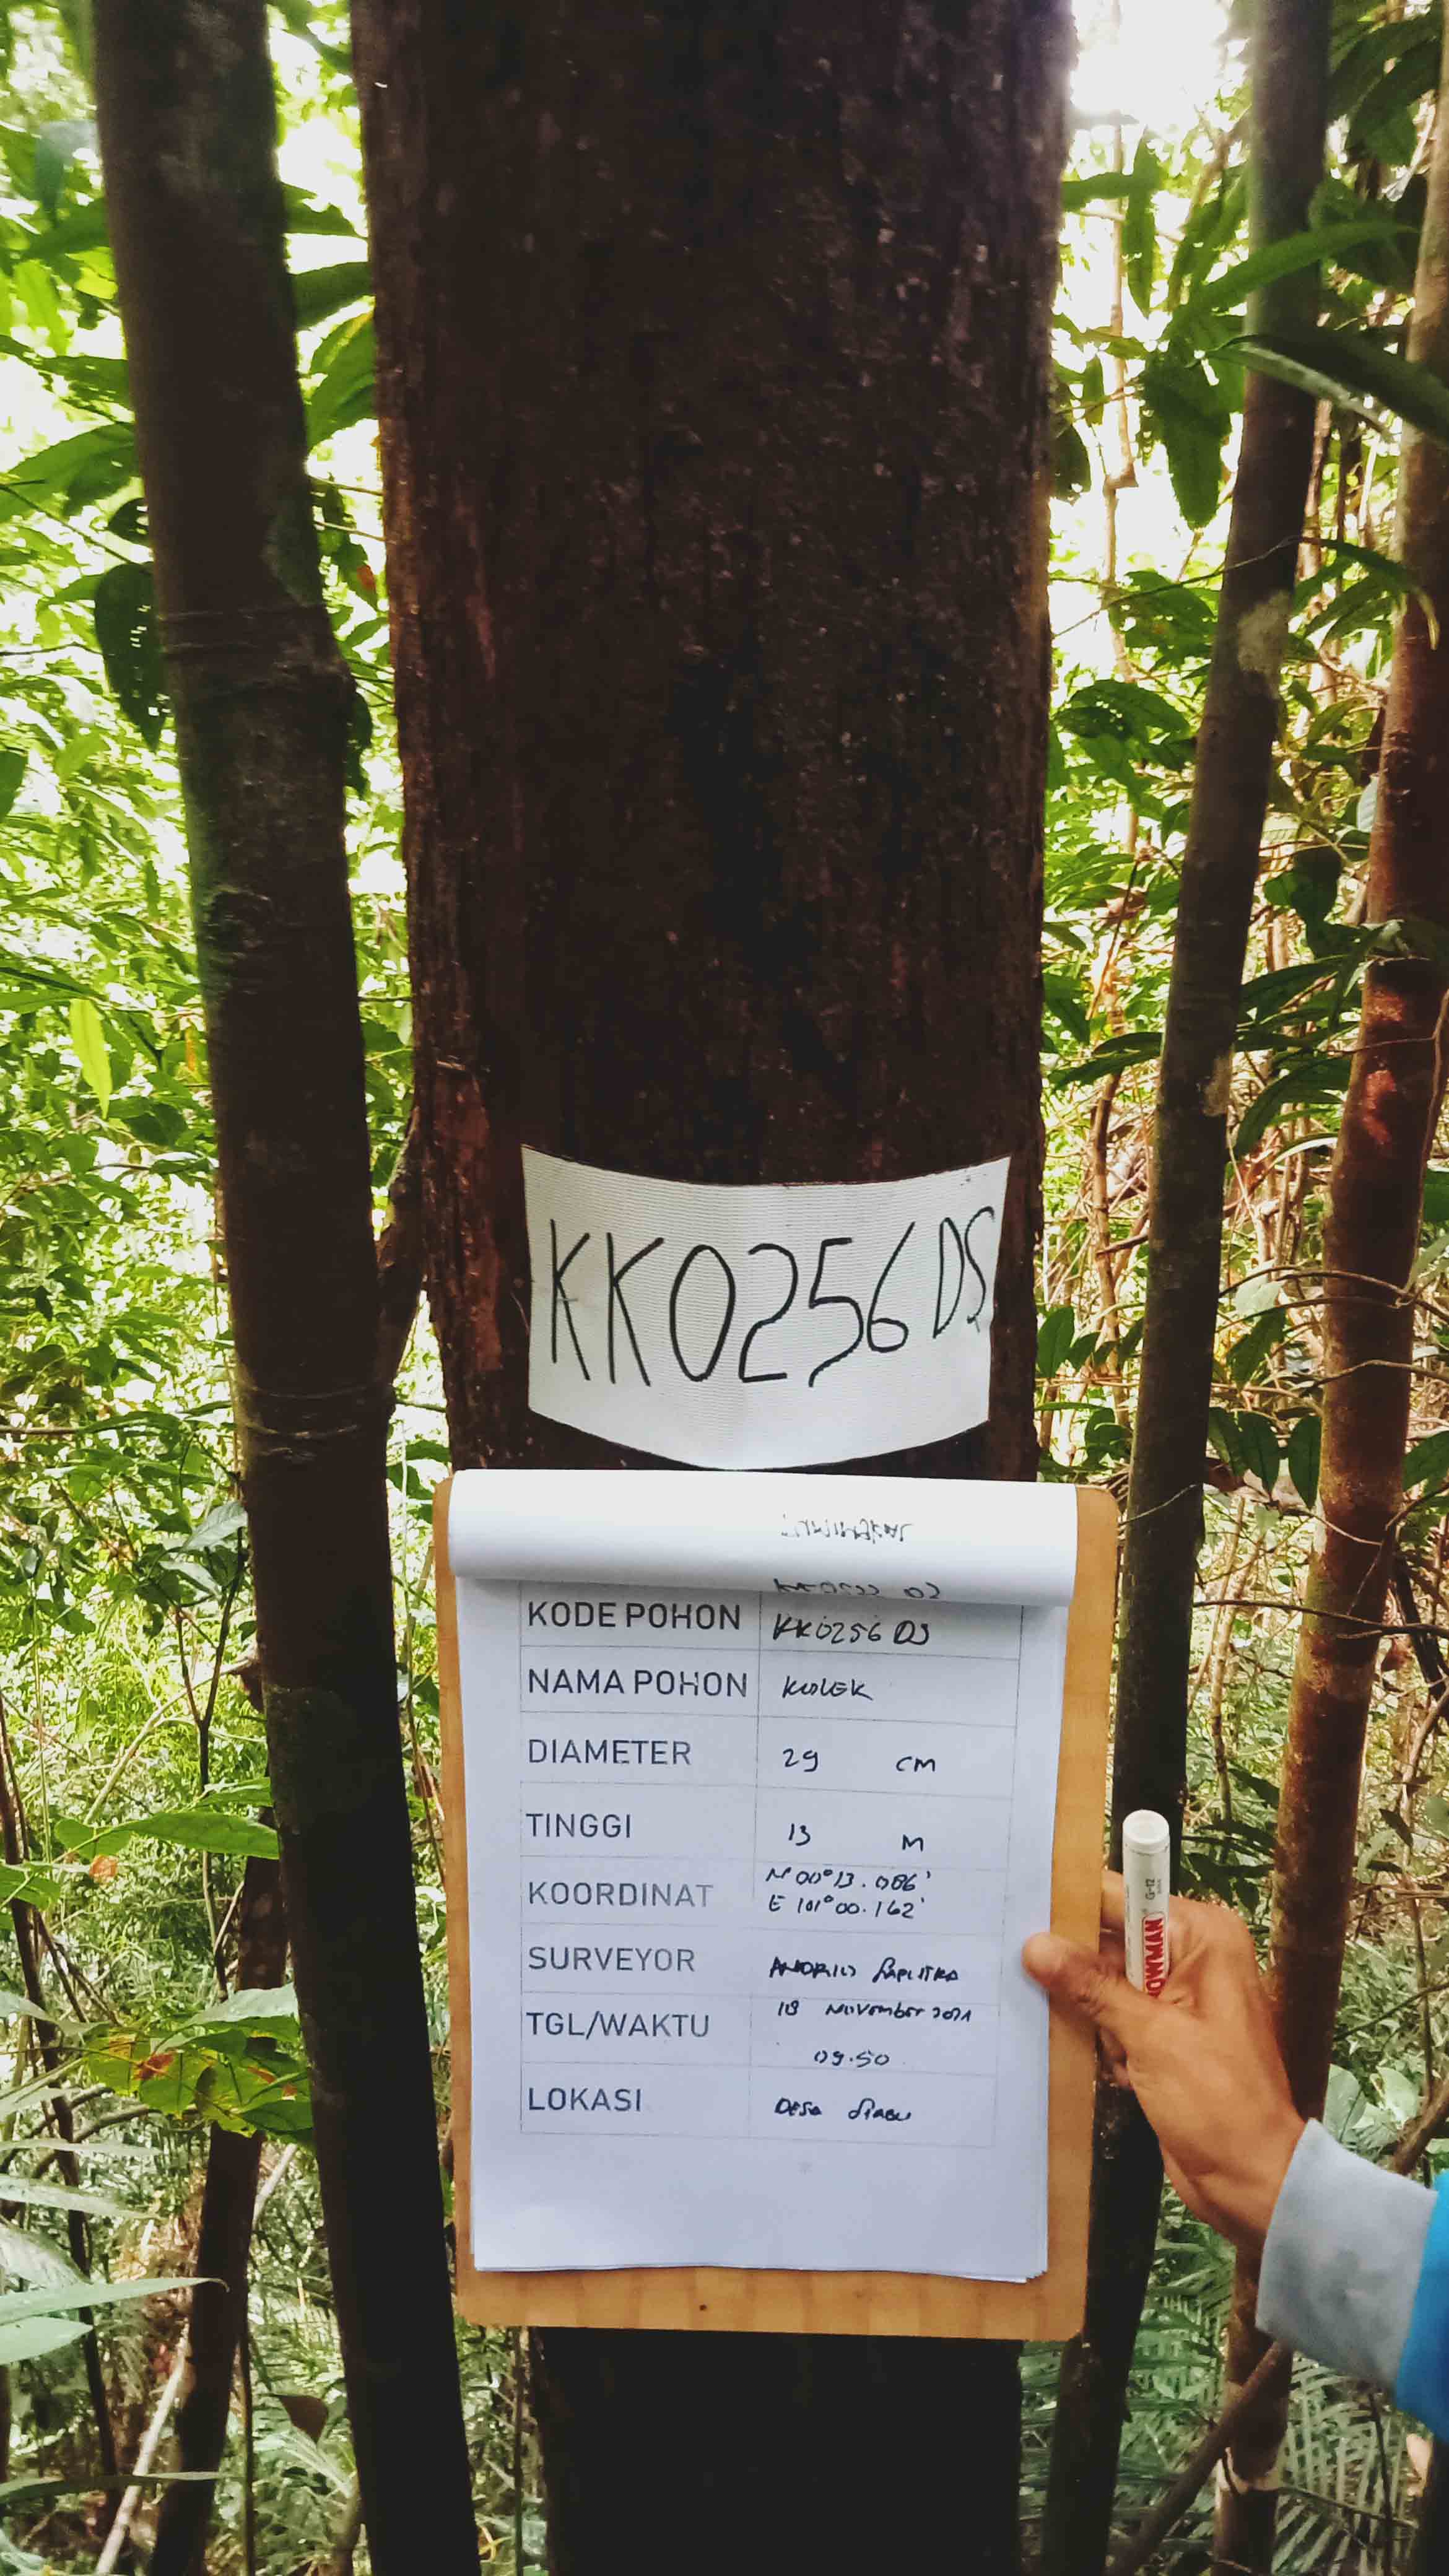 KK0256 DS
KODE POHON KK0256 DS
NAMA POHON KOLEK
DIAMETER 29 CM
TINGGI 13 M
KOORDINAT N 00°13.086'
E 101°00.162'
SURVEYOR SAPUTRA
TGL/WAKTU 18 November 2021
09.50
LOKASI DESA SIABU
SNOWMAN
G-12